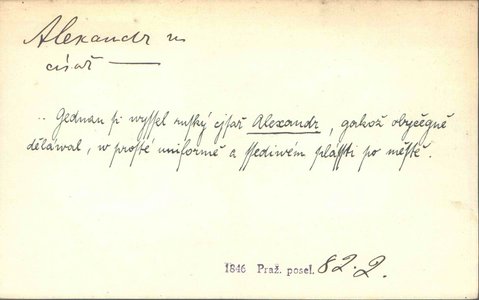 Alexandr
císař
.. Gednau si wyssel ruský cjsař Alexandr, gakož obyčegně
děláwal, w prosté uniformě a ssediwém plássti po městě.
1846 Praž. posel. 82.2.